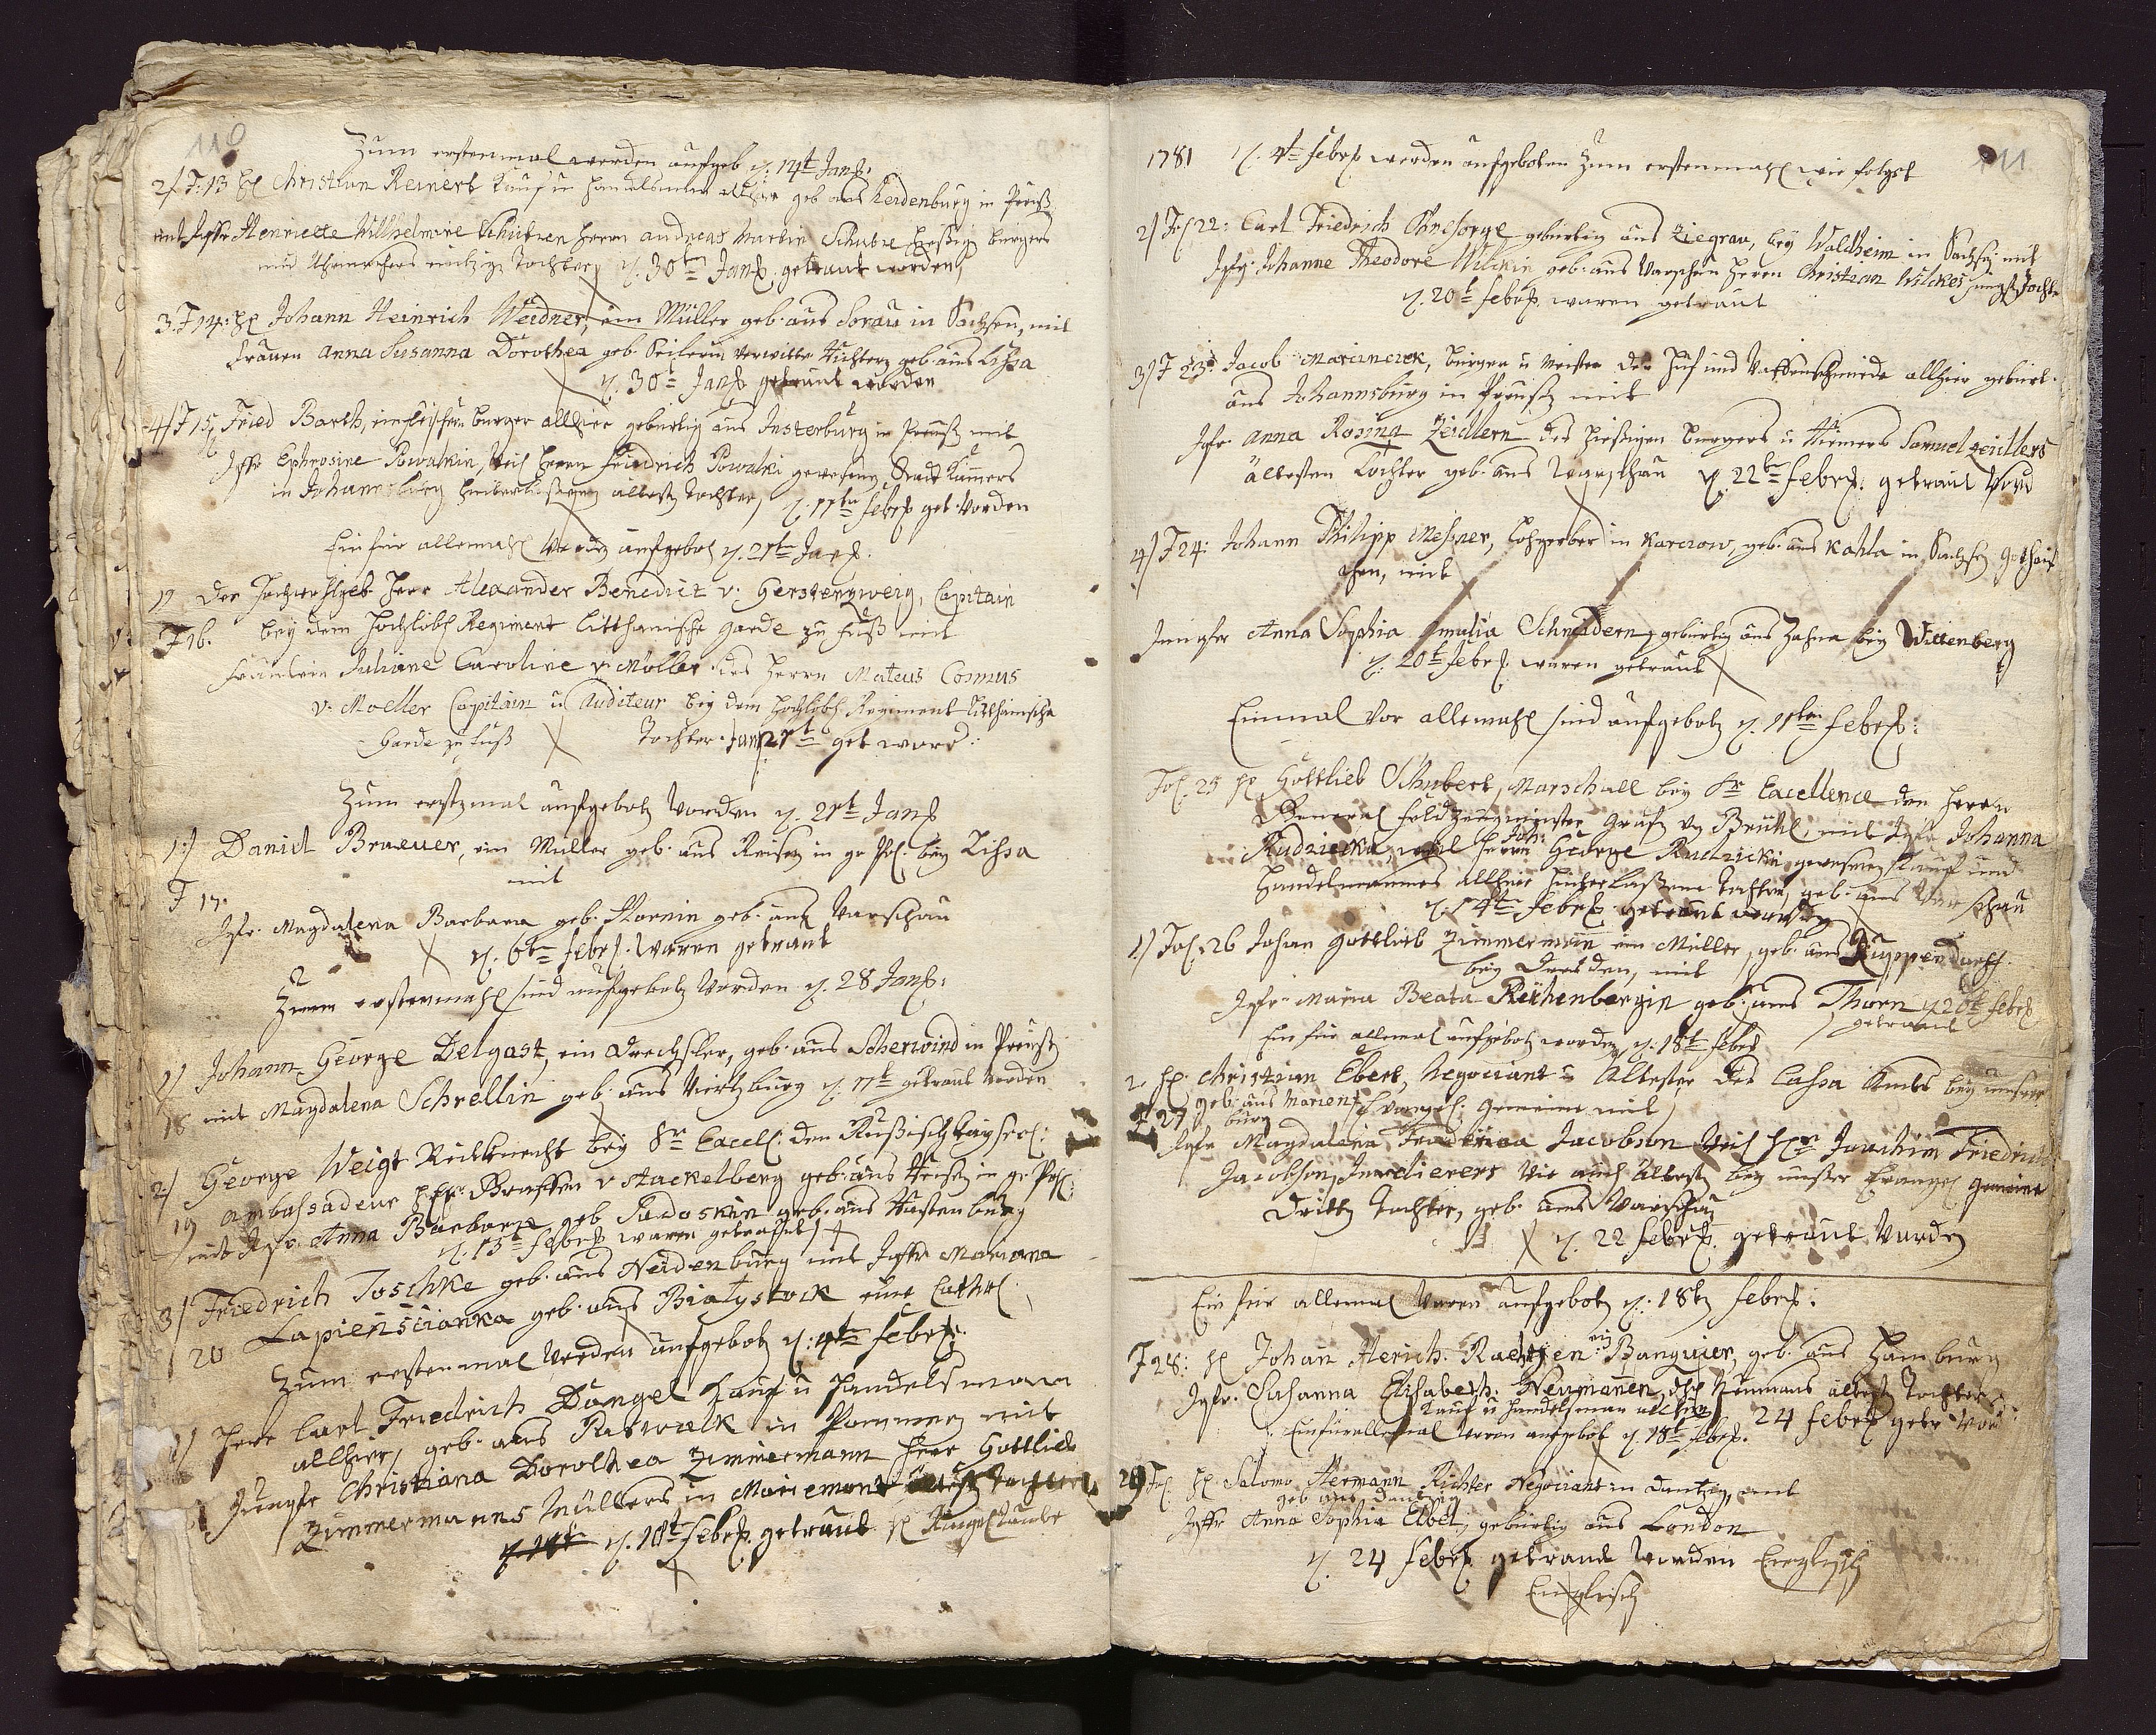 110
Zum erstenmal werden aufgeb d. 14t Jan:
2) F: 13 H Christian Reinert Kauf u Handelsman allhier geb aus Neidenburg in Preuß
mit Jgfr Henriette Willhelmine Schultzen Herrn andreas Martin Schultze Hiesigen burgers
und Uhrmachers einzige Tochter d. 30ten Jan: getraut worden
3. F 14: H Johann Heinrich Weidner, ein Müller geb: aus Sorau in Sachsen, mit
Frauen anna Susanna Dorothea geb Seilerin verwittw Richtern geb: aus Lissa
d. 30t Jan: getraut worden
4) F 15 Fried Barth, ein burger allhier gebürtig aus Insterburg in Preuß mit
Jgfr Ephrosine Powalkin, Herrn Friedrich Powalki gewesenen Stadt Kämers
in Johannsburg hinterlaßenen ältesten Tochter, d. 11ten febr: get. worden
Ein für allemahl werden aufgebot d. 21ten Jan:
1) Der Hochwohlgeb Herr Alexander Benedict v: Gerstenzweig, Capitain
F 16. bey dem Hochlöbl Regiment Litthauische Garde zu Fuß mit
Fräulein Juliane Caroline v: Möller des Herrn Mateus Cosmus
v: Moeller Capitain u Auditeur bey dem Hochlöbl Regiment Litthauische
Garde zu Fuß Tochter. Jan 21t get word:
Zum erstmal aufgebot worden d. 21t Jan
1:) Daniel Braeuer, ein Müller geb. aus Reisen in gr Pol: bey Lissa
mit
F 17.
Jgfr: Magdalena Barbara geb. Stornin geb: aus Warschau
d. 6te febr: waren getraut
Zum erstenmahl sind aufgebot worden d. 28 Jan:
1) Johann George Delgast, ein Drechsler, geb: aus Scherwind in Preuß
18 mit Magdalena Schrellin geb: aus Würtzburg d. 11t getraut worden
2) George Weigt Reitknecht bey Sr Excell: den Rußisch Kayserl:
19 ambassadeur Graffen v Stackelberg geb: aus in gr Pol:
mit Jgfr. Anna Barbara geb Sadoskin geb: aus Rastenburg
d. 13t febr waren getraut
3) Friedrich Toschke geb: aus Neidenburg mit Jgfr Mariana
20 Lapienscianka geb: aus Bialystock eine Cathol
Zum erstenmal werden aufgebot d: 4te febr:
1) Herr Carl Friedrich Dongel Kauf u Handelsmann
allhier, geb: aus Paswalk in Pommern mit
Jungfr Christiana Dorothea Zimmermann Herr Gottlieb
Zimmermanns Müllers in Mariemont ältest Tochter
d. 18t d. 18t febr: getraut H Ringeltaube
1781 d. 4te febr: werden aufgeboten zum erstenmahl wie folget
111
2) Fol 22: Carl Friedrich Ohnesorge gebürtig aus Ziegrau, bey Waldheim in Sachsen mit
Jgfr: Johanne Theodore Wilckin geb: aus Warschau Herrn Christian Wilckes jüngst Tochter
d. 20t febr waren getraut
3) F 23: Jacob Marcinczek, bürger u Meister der Huf und Waffenschmiede allhier gebürt.
aus Johannsburg in Preuß mit
Jgfr anna Rosina Zeidlern des hiesigen bürgers u Riemers Samuel Zeidlers
ältesten Tochter geb. aus Warschau d. 22te febr: getraut word
4) F 24: Johann Philipp Meßner, Lohgerber in Karczow, geb: aus Kahla in Sachsen Gothaischen, mit
Jungfer Anna Sophia Amalia Schneidern gebürtig aus Zahna bey Wittenberg
d. 20t febr: waren getraut
Einmal vor allemahl sind aufgebot d. 11ten febr:
Fol: 25 H Gottlieb Schubert, Marschall bey Sr Excellence den Herrn
General Feldzeugmeister Graf v Brühl, mit Jgfr Johanna
Rudzicka, weil Herrn Joh: George Rudzicki gewesenen Kauf und
Handelmannes allhier hinterlaßene Tochter, geb: aus Warschau
d. 14te febr: getraut worden
1) Fol: 26 Johan Gottlieb Zimmerman ein Müller, geb: aus Ruppendorf
bey Dresden, mit
Jgfr: Maria Beata Reichenbergin geb: aus Thorn d 20t febr
getraut
Ein für allemal aufgebot worden d. 18t febr
2. H: Christian Ebert, Negociant u Ältester des Cassa Amts bey unser
geb: aus Marienburg Evangel: Gemeine mit
F 27
Jgfr Magdalena Frederica Jacobson weil H Joachim Friedrich
Jacobson Juvelierers wie auch Ältest bey unsser Evangel Gemeine
dritte Tochter, geb: aus Warschau
d. 22 febr: getraut wurden
Ein für allemal waren aufgebot d: 18t febr:
F 28: H Johan Hierich. Raetjen ein Banquier, geb: aus Hamburg
Jgfr. Susanna Elisabeth Neumanen, Neumans ältest Tochter
Kauf u Handelsman allhier 24 febr: getr: word:
Einfürallemal waren aufgebot d. 18t febr:
29 Fol: H Salomo Hermann Richter Negociant in Dantzig, mit
geb aus Dantzig
Jgfr Anna Sophia Elbet, gebürtig aus London
d. 24 febr: getraut worden Englisch
Englisch